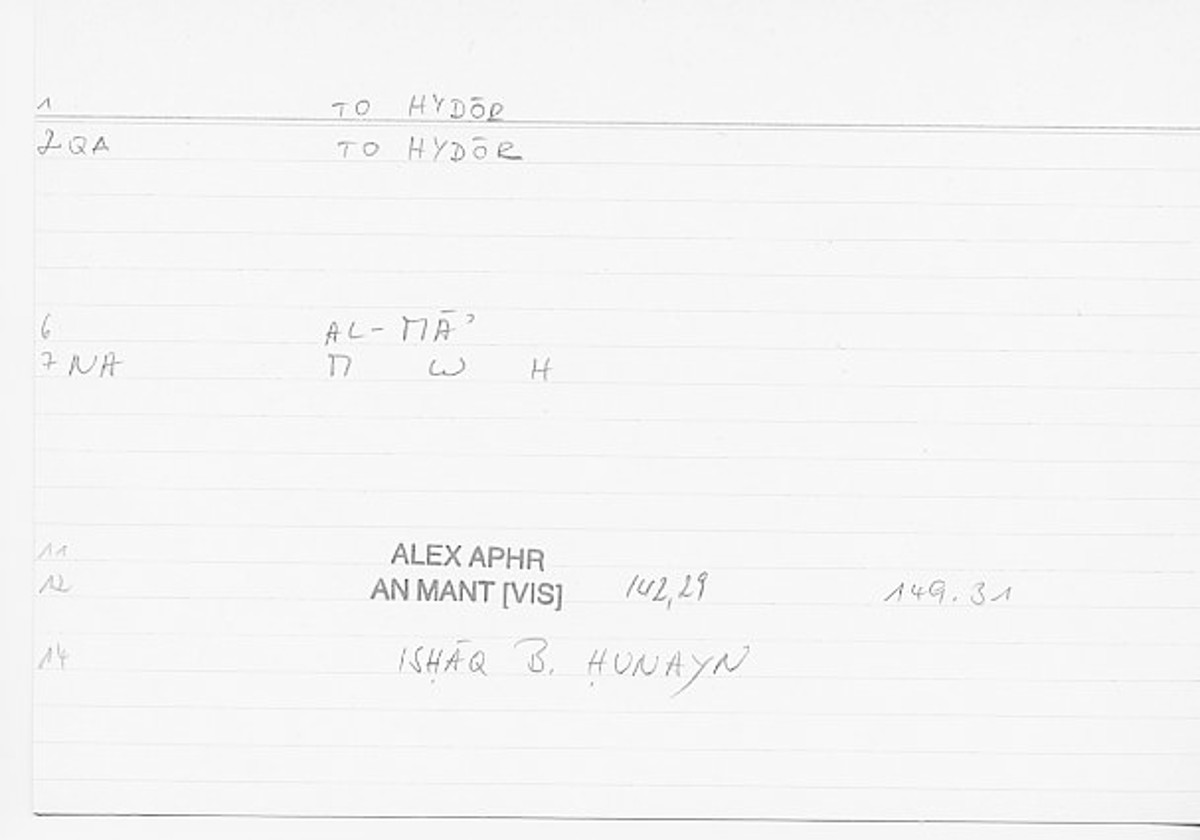 1 TO HYDŌR
2 QA TO HYDŌR
6 AL-MĀʾ
7 NA M W H
11 ALEX APHR
12 AN MANT [VIS] 142,29 149.31
14 ISḤĀQ B. ḤUNAYN